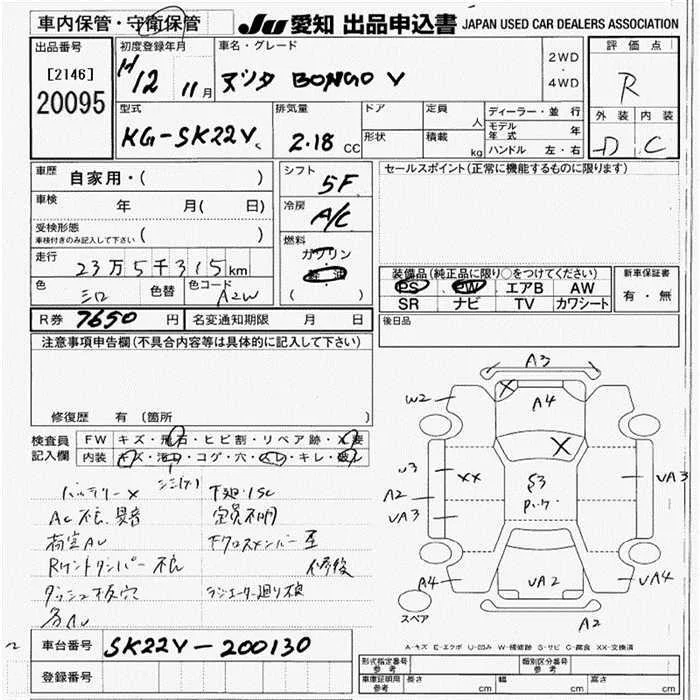 車内保管・守衛保管
JU 愛知 出品申込書 JAPAN USED CAR DEALERS ASSOCIATION
出品番号
[2146]
20095
初度登録年月
H12 11月
車名・グレード
マツダ BONGO V
2WD
・
4WD
評価点
R
外装 内装
D C
型式
KG-SK22V
排気量
2.18 CC
ドア
形状
定員 人
積載 kg
ディーラー・並行
モデル年式 年
ハンドル 左・右
車歴 自家用・( )
車検 年 月( 日)
受検形態
車検付きのみ記入して下さい ( )
走行 23万5千315km
色 シロ 色替 色コード A2W
シフト 5F
冷房 A/C
燃料
ガソリン
軽油
( )
セールスポイント(正常に機能するものに限ります)
装備品(純正品に限り○をつけてください)
PS PW エアB AW
SR ナビ TV カワシート
新車保証書
有・無
R券 7650 円 名変通知期限 月 日
後日品
注意事項申告欄(不具合内容等は具体的に記入して下さい)
修復歴 有(箇所 )
検査員記入欄
FW キズ・飛石・ヒビ割・リペア跡・X要
内装 キズ・汚れ・コゲ・穴・スレ・キレ・破れ
バッテリーX
下廻りSC
AC不良、異音
定員不明
荷室AU
下クロスメンバー歪
修後
Rフロントダンパー不良
ダッシュ板穴
ラジエーター廻り腐
各AU
A3
W2
A4
X
X
U3
XX
S3
UA3
A2
UA3
A4
UA2
UA4
A2
スペア
A-キズ E-エクボ U-凹み W-補修跡 S-サビ C-腐食 XX-交換済
車台番号 SK22V-200130
登録番号
形式指定番号 参考
類別区分番号 参考
車庫証明用 参考 長さ cm 幅 cm 高さ cm